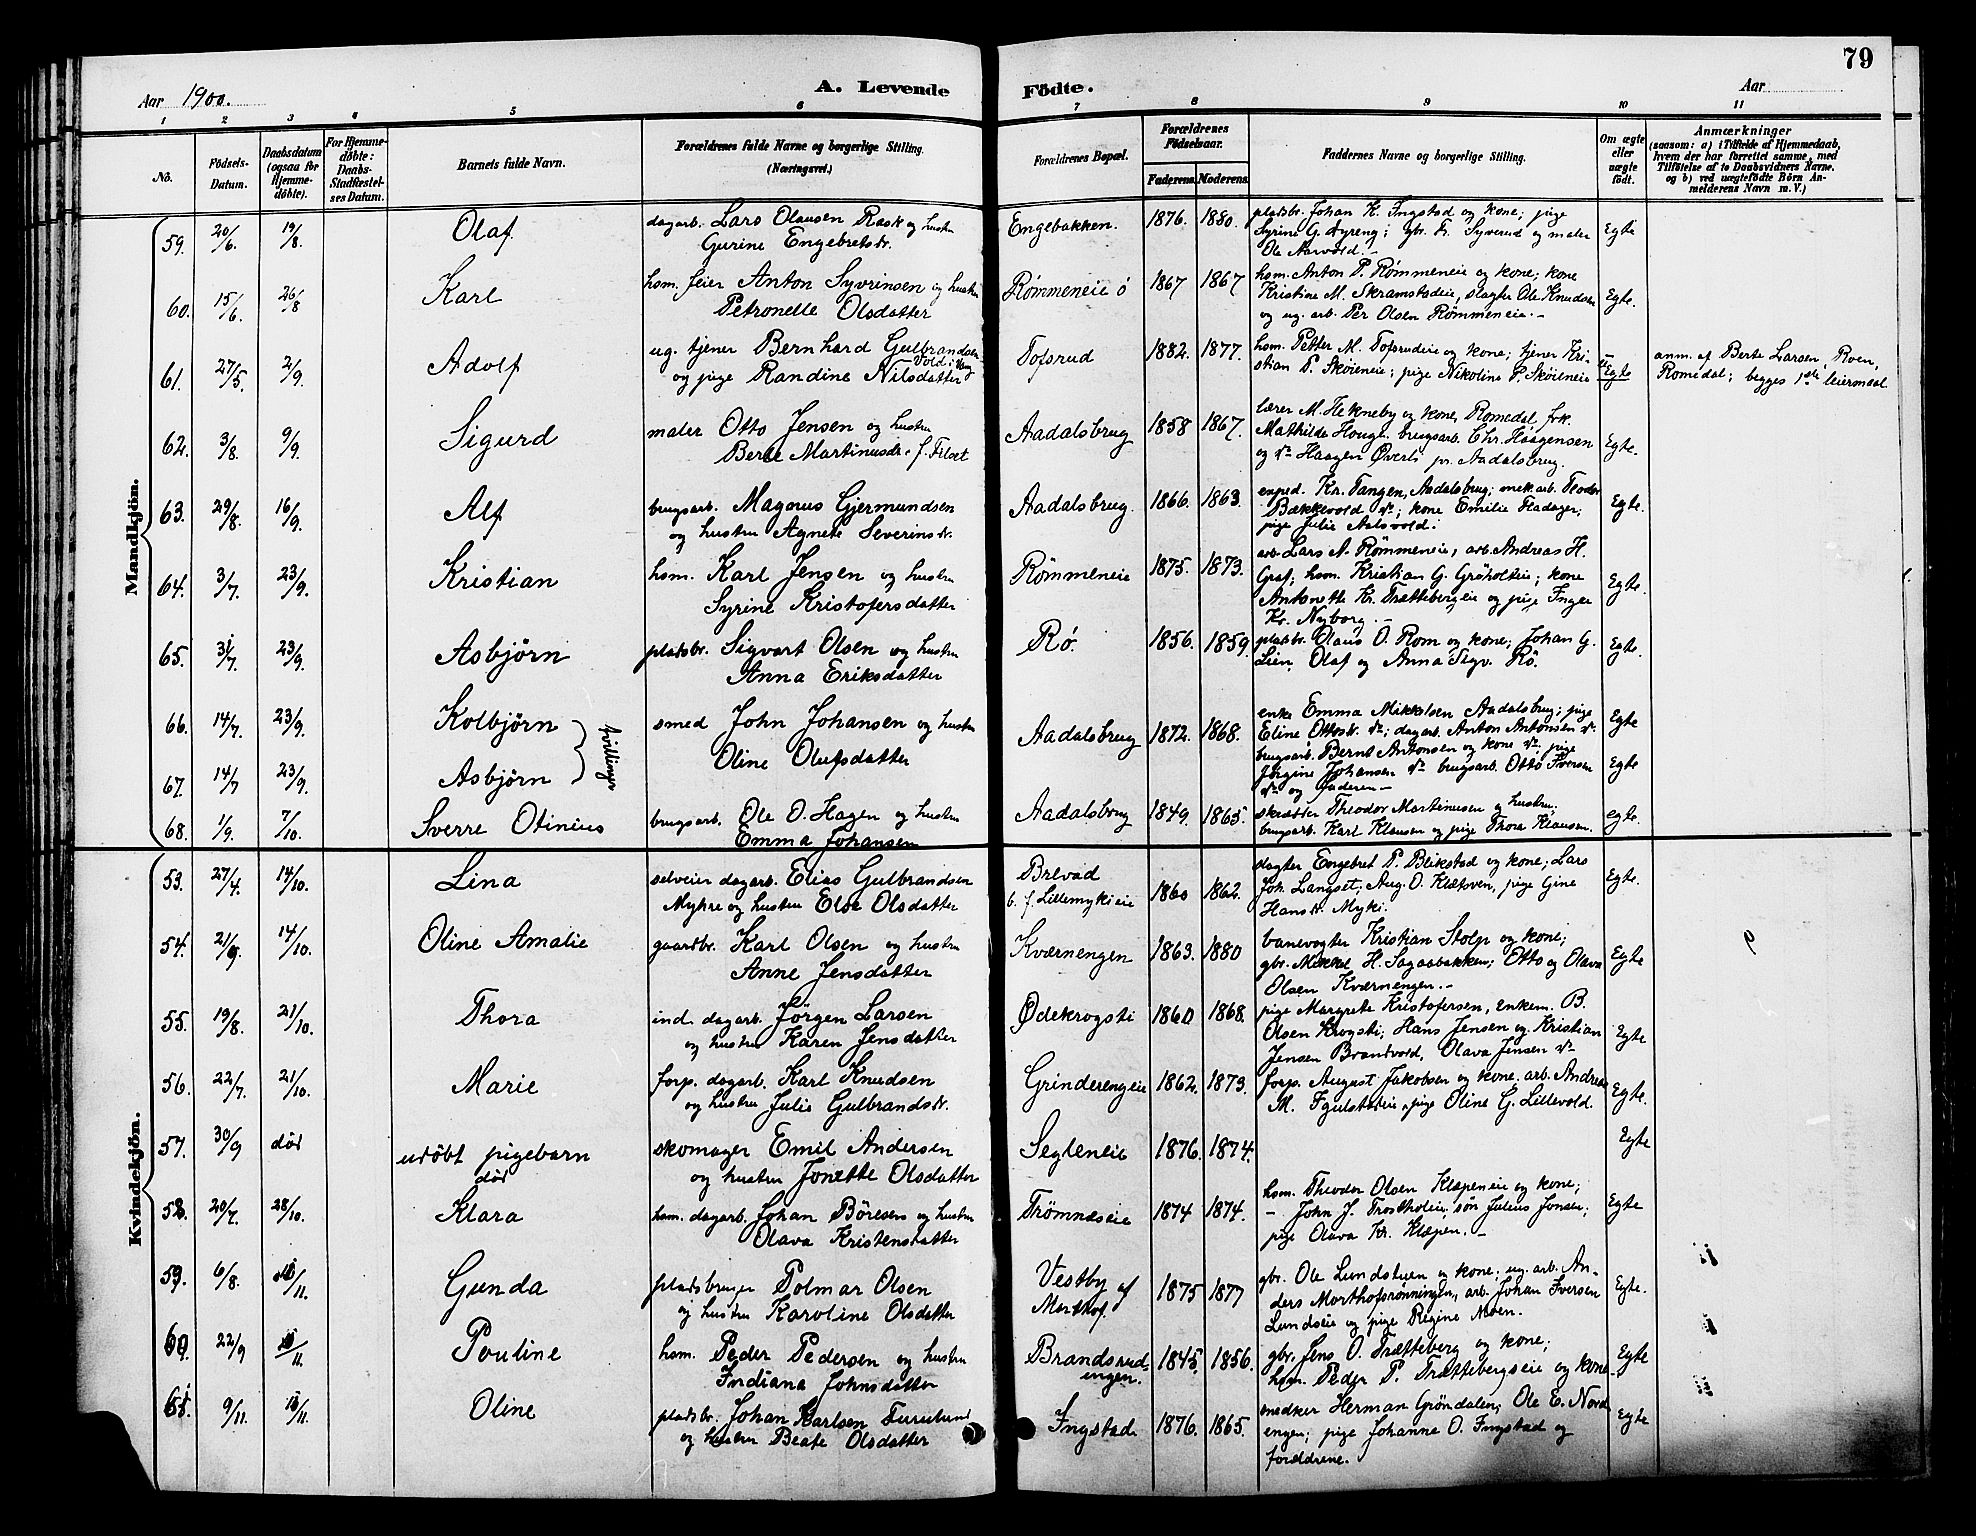 79
Aar 1900.
A. Levende Födte.
Aar
1 2 3 4 5 6 7 8 9 10 11
No.
Födsels-Datum.
Daabsdatum (ogsaa for Hjemmedøbte).
For Hjemmedøbte: Daabs-Stadfæstelses Datum.
Barnets fulde Navn.
Forældrenes fulde Navne og borgerlige Stilling. (Næringsvei.)
Forældrenes Bopæl.
Forældrenes Födselsaar.
Faderens. Moderens.
Faddernes Navne og borgerlige Stilling.
Om ægte eller uægte født.
Anmærkninger (saasom: a) i Tilfælde af Hjemmedaab, hvem der har forrettet samme, med Tilföielse af to Daabsvidners Navne. og b) ved uægtefødte Börn Anmelderens Navn m. V.)
Mandkjön.
59. 20/6. 19/8. Olaf dagarb. Lars Olausen Rask og hustru Engebakken. 1876. 1880. pladsbr. Johan K. Ingstad og kone; pige Egte
Gurine Engebretsdr. Syrine G. Dyreng; gbr. Kr. Syverud og maler
Ole Narvold.-
60. 15/6. 26/8 Karl hsm. feier Anton Syvrinsen og hustru Rømmeneie ö 1867 1867 hsm. Anton P. Rømmeneie og kone; kone Egte.
Petronelle Olsdatter Kristine M. Skramstadeie, slagter Ole Knudsen
og ug. arb. Per Olsen Rømmeneie.-
61. 27/5. 2/9. Adolf ug. tjener Bernhard Gulbrandsen Tofsrud 1882. 1877. hsm. Petter M. Tofsrudeie og kone; tjener Kri- uEgte anm. af Berte Larsen, Roen,
og pige Randine Nilsdatter stian P. Skøieneie; pige Nikoline P. Skøieneie Romedal; begges 1ste leiermaal
62. 3/8. 9/9. Sigurd maler Otto Jensen og hustru Aadalsbrug 1858 1867. lærer M. Hekneby og kone, Romedal, frk. Egte.
Berte Martinusdr. f. Filset Mathilde Houge, brugsarb. Chr. Haagensen
og do Haagen Øverli pr. Aadalsbrug.
63. 29/8. 16/9. Alf brugsarb. Magnus Gjermundsen Aadalsbrug. 1866. 1863. exped. Kr. Tangen, Aadalsbrug; mek.arb. Teodor Egte.
og hustru Agnete Severinsdr. Bækkevold do; kone Emilie Fladager;
pige Julie Aalsvold.
64. 3/7. 23/9. Kristian hsm. Karl Jensen og hustru Rømmeneie 1875. 1873. arb. Lars N. Rømmeneie, arb. Andreas H. Egte.
Syrine Kristofersdatter Graf; hsm. Kristian G. Grøholteie; kone
Antonette Kr. Trættebergeie og pige Inger
Kr. Nyborg.-
65. 31/7. 23/9. Asbjörn pladsbr. Sigvart Olsen og hustru Rö. 1856. 1859. pladsbr. Olaus O. Rom og kone; Johan G. Egte.
Anna Eriksdatter Lien, Olaf og Anna Sigv. Rö.
66. 14/7. 23/9. Kolbjörn smed John Johansen og hustru Aadalsbrug 1872. 1868. enke Emma Mikkelsen Aadalsbrug; pige Egte
Oline Olufsdatter Eline Ottosdr. do; dagarb. Anton Antonsen do.
tvillinger brugsarb. Bernt Antonsen og kone do, pige
67. 14/7 23/9. Asbjörn Jørgine Johansen do brugsarb. Otto Iversen Egte
do og faderen-
68. 1/9. 7/10. Sverre Otinius brugsarb. Ole O. Hagen og hustru Aadalsbrug 1849. 1865. skrædder Theodor Martinusen og hustru; egte.
Emma Johansen brugsarb. Karl Klausen og pige Thora Klausen.
Kvindekjön.
53. 27/4. 14/10. Lina selveier dagarb. Elias Gulbrandsen Brevad 1860 1862. Engebret P. Blikstad og kone; Lars Egte.
Myhre og hustru Else Olsdatter b. f. Lillemykieie Joh. Langset, Aug. O. Kletsven, pige Gine
Hansdr. Myki.
54. 21/9. 14/10. Oline Amalie gaardbr. Karl Olsen og hustru Kværnengen 1863. 1880 banevogter Kristian Stolp og kone; Egte
Anne Jensdatter gbr. Mikkel H. Sagaabakken; Otto og Olava
Olsen Kværnengen.-
55. 19/8. 21/10. Thora ind. dagarb. Jörgen Larsen Ødekrogsti 1860 1868. pige Margrete Kristofersen, enkem. B. Egte
og hustru Karen Jensdatter Olsen Krogsti; Hans Jensen og Kristian
Jensen Brandvold, Olava Jensen do
56. 22/7. 21/10. Marie forp. dagarb. Karl Knudsen Grinderengeie 1862. 1873. forp. August Jakobsen og kone. arb. Andreas Egte.
og hustru Julie Gulbrandsdr. M. , pige Oline G. Lillevold.
57. 30/9 död udöbt pigebarn skomager Emil Andersen Segleneie 1876. 1874. Egte
död og hustru Jonette Olsdatter
58. 20/7. 28/10. Klara hsm. dagarb. Johan Böresen og hustru Trömnæseie 1874 1874. hsm. Theodor Olsen Klæpeneie og kone; Egte
Olava Kristensdatter - John J. Trostholeie; sön Julius Jonsen;
pige Olava Kr. Klæpen.-
59. 6/8. /11. Gunda pladsbruger Polmar Olsen Vestby af 1875 1877 gbr. Ole Lundstuen og kone; ug. arb. An- Egte.
og hustru Karoline Olsdatter Morthof. ders Morthofsrønningen, arb. Johan Iversen
Lundseie og pige Regine Moen.
60. 22/9 /11. Pouline hsm. Peder Pedersen og hustru Brandsrud- 1845. 1856. gbr. Jens O. Trætteberg og kone; Egte
Indiana Johnsdatter engen. hsm. Peder P. Trættebergseie og kone.
61. 9/11. /11. Oline pladsbr. Johan Karlsen Furulund Ingstad 1876. 1865. snedker Herman Gröndalen, Ole E. Nord- Egte
og hustru Beate Olsdatter engen; pige Johanne O. Ingstad og
forældrene.